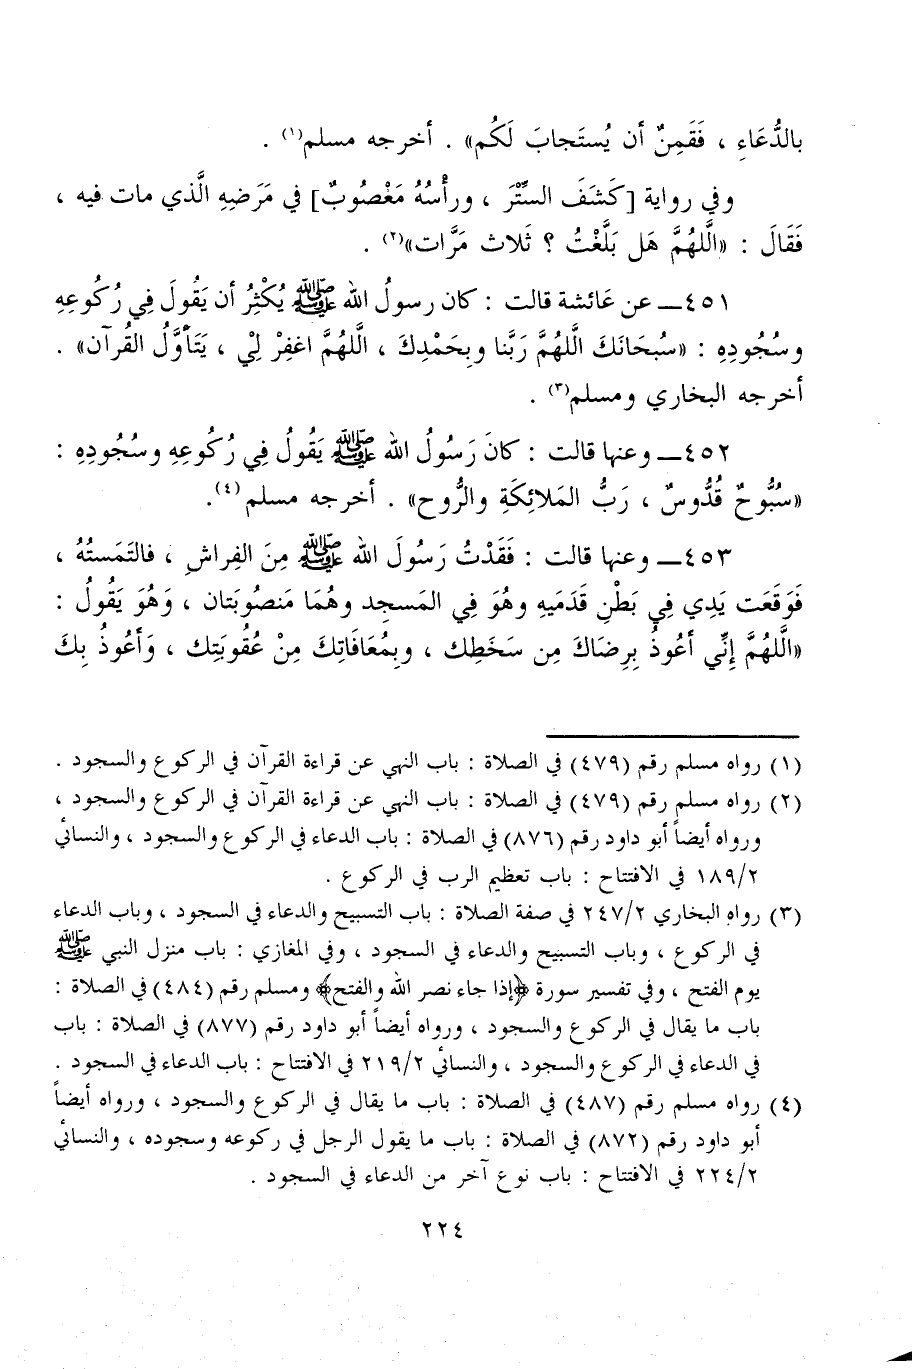 بالدُّعَاءِ ، فَقَمِنٌ أن يُستَجابَ لَكُم» . أخرجه مسلم(١) .
وفي رواية [كَشَفَ السِّتْرَ ، ورأْسُهُ مَعْصُوبٌ] في مَرَضِهِ الَّذي مات فيه ،
فَقَالَ : «الَّلهُمَّ هَل بَلَّغْتُ ؟ ثَلاث مَرَّات»(٢) .
٤٥١ــ عن عَائشة قالت : كان رسولُ الله ﷺ يُكْثِرُ أن يَقُولَ فِي رُكُوعِهِ
وسُجُودِهِ : «سُبحَانَكَ الَّلهُمَّ رَبَّنا وبِحَمْدِكَ ، الَّلهُمَّ اغفِرْ لِيْ ، يَتَأَوَّلُ القُرآن» .
أخرجه البخاري ومسلم(٣) .
٤٥٢ــ وعنها قالت : كانَ رَسُولُ الله ﷺ يَقُولُ فِي رُكُوعِهِ وسُجُودِهِ :
«سُبُّوحٌ قُدُّوسٌ ، رَبُّ المَلائِكَةِ والرُّوح» . أخرجه مسلم(٤).
٤٥٣ــ وعنها قالت : فَقَدْتُ رَسُولَ الله ﷺ مِنَ الفِراشِ ، فالتَمَستُهُ ،
فَوَقَعَت يَدِي فِي بَطْنِ قَدَمَيهِ وهُوَ فِي المَسجِد وهُمَا مَنصُوبَتان ، وَهُوَ يَقُولُ :
«الَّلهُمَّ إِنِّي أعُوذُ بِرِضَاكَ مِن سَخَطِك ، وبِمُعَافَاتِكَ مِنْ عُقُوبَتِك ، وَأعُوذُ بِكَ
(١) رواه مسلم رقم (٤٧٩) في الصلاة : باب النهي عن قراءة القرآن في الركوع والسجود .
(٢) رواه مسلم رقم (٤٧٩) في الصلاة : باب النهي عن قراءة القرآن في الركوع والسجود ،
ورواه أيضاً أبو داود رقم (٨٧٦) في الصلاة : باب الدعاء في الركوع والسجود ، والنسائي
١٨٩/٢ في الافتتاح : باب تعظيم الرب في الركوع .
(٣) رواه البخاري ٢٤٧/٢ في صفة الصلاة : باب التسبيح والدعاء في السجود ، وباب الدعاء
في الركوع ، وباب التسبيح والدعاء في السجود ، وفي المغازي : باب منزل النبي ﷺ
يوم الفتح ، وفي تفسير سورة ﴿إذا جاء نصر الله والفتح﴾ ومسلم رقم (٤٨٤) في الصلاة :
باب ما يقال في الركوع والسجود ، ورواه أيضاً أبو داود رقم (٨٧٧) في الصلاة : باب
في الدعاء في الركوع والسجود ، والنسائي ٢١٩/٢ في الافتتاح : باب الدعاء في السجود .
(٤) رواه مسلم رقم (٤٨٧) في الصلاة : باب ما يقال في الركوع والسجود ، ورواه أيضاً
أبو داود رقم (٨٧٢) في الصلاة : باب ما يقول الرجل في ركوعه وسجوده ، والنسائي
٢٢٤/٢ في الافتتاح : باب نوع آخر من الدعاء في السجود .
٢٢٤